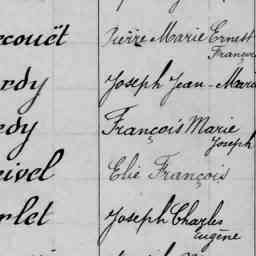 ecouët Pierre Marie Ernest
François
rdy Joseph Jean-Marie
edy François Marie
Joseph
eivel Elie François
rlet Joseph Charles
Eugène